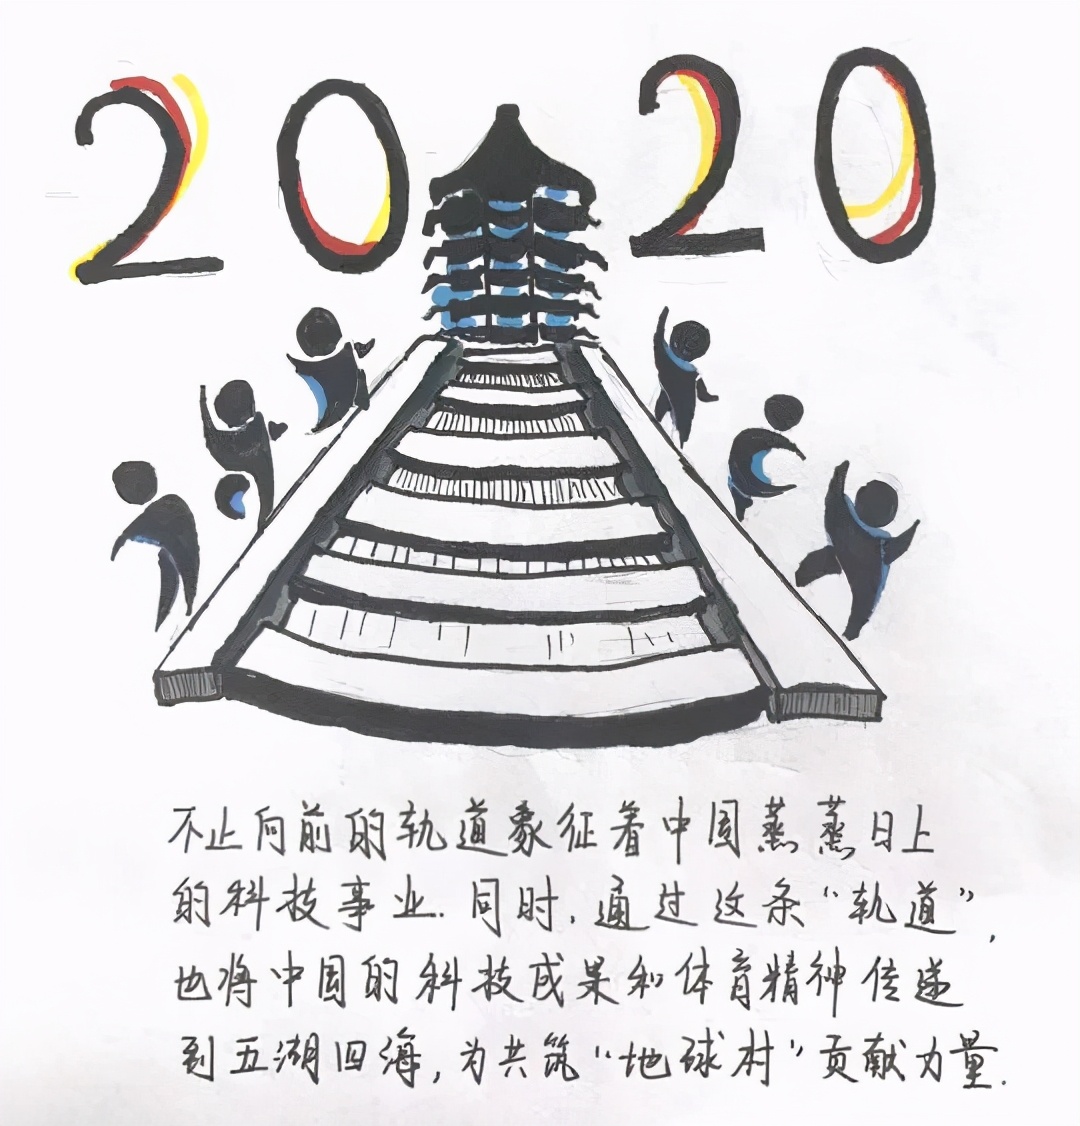 2020
不止向前的轨道象征着中国蒸蒸日上
的科技事业.同时,通过这条“轨道”,
也将中国的科技成果和体育精神传递
到五湖四海,为共筑“地球村”贡献力量.